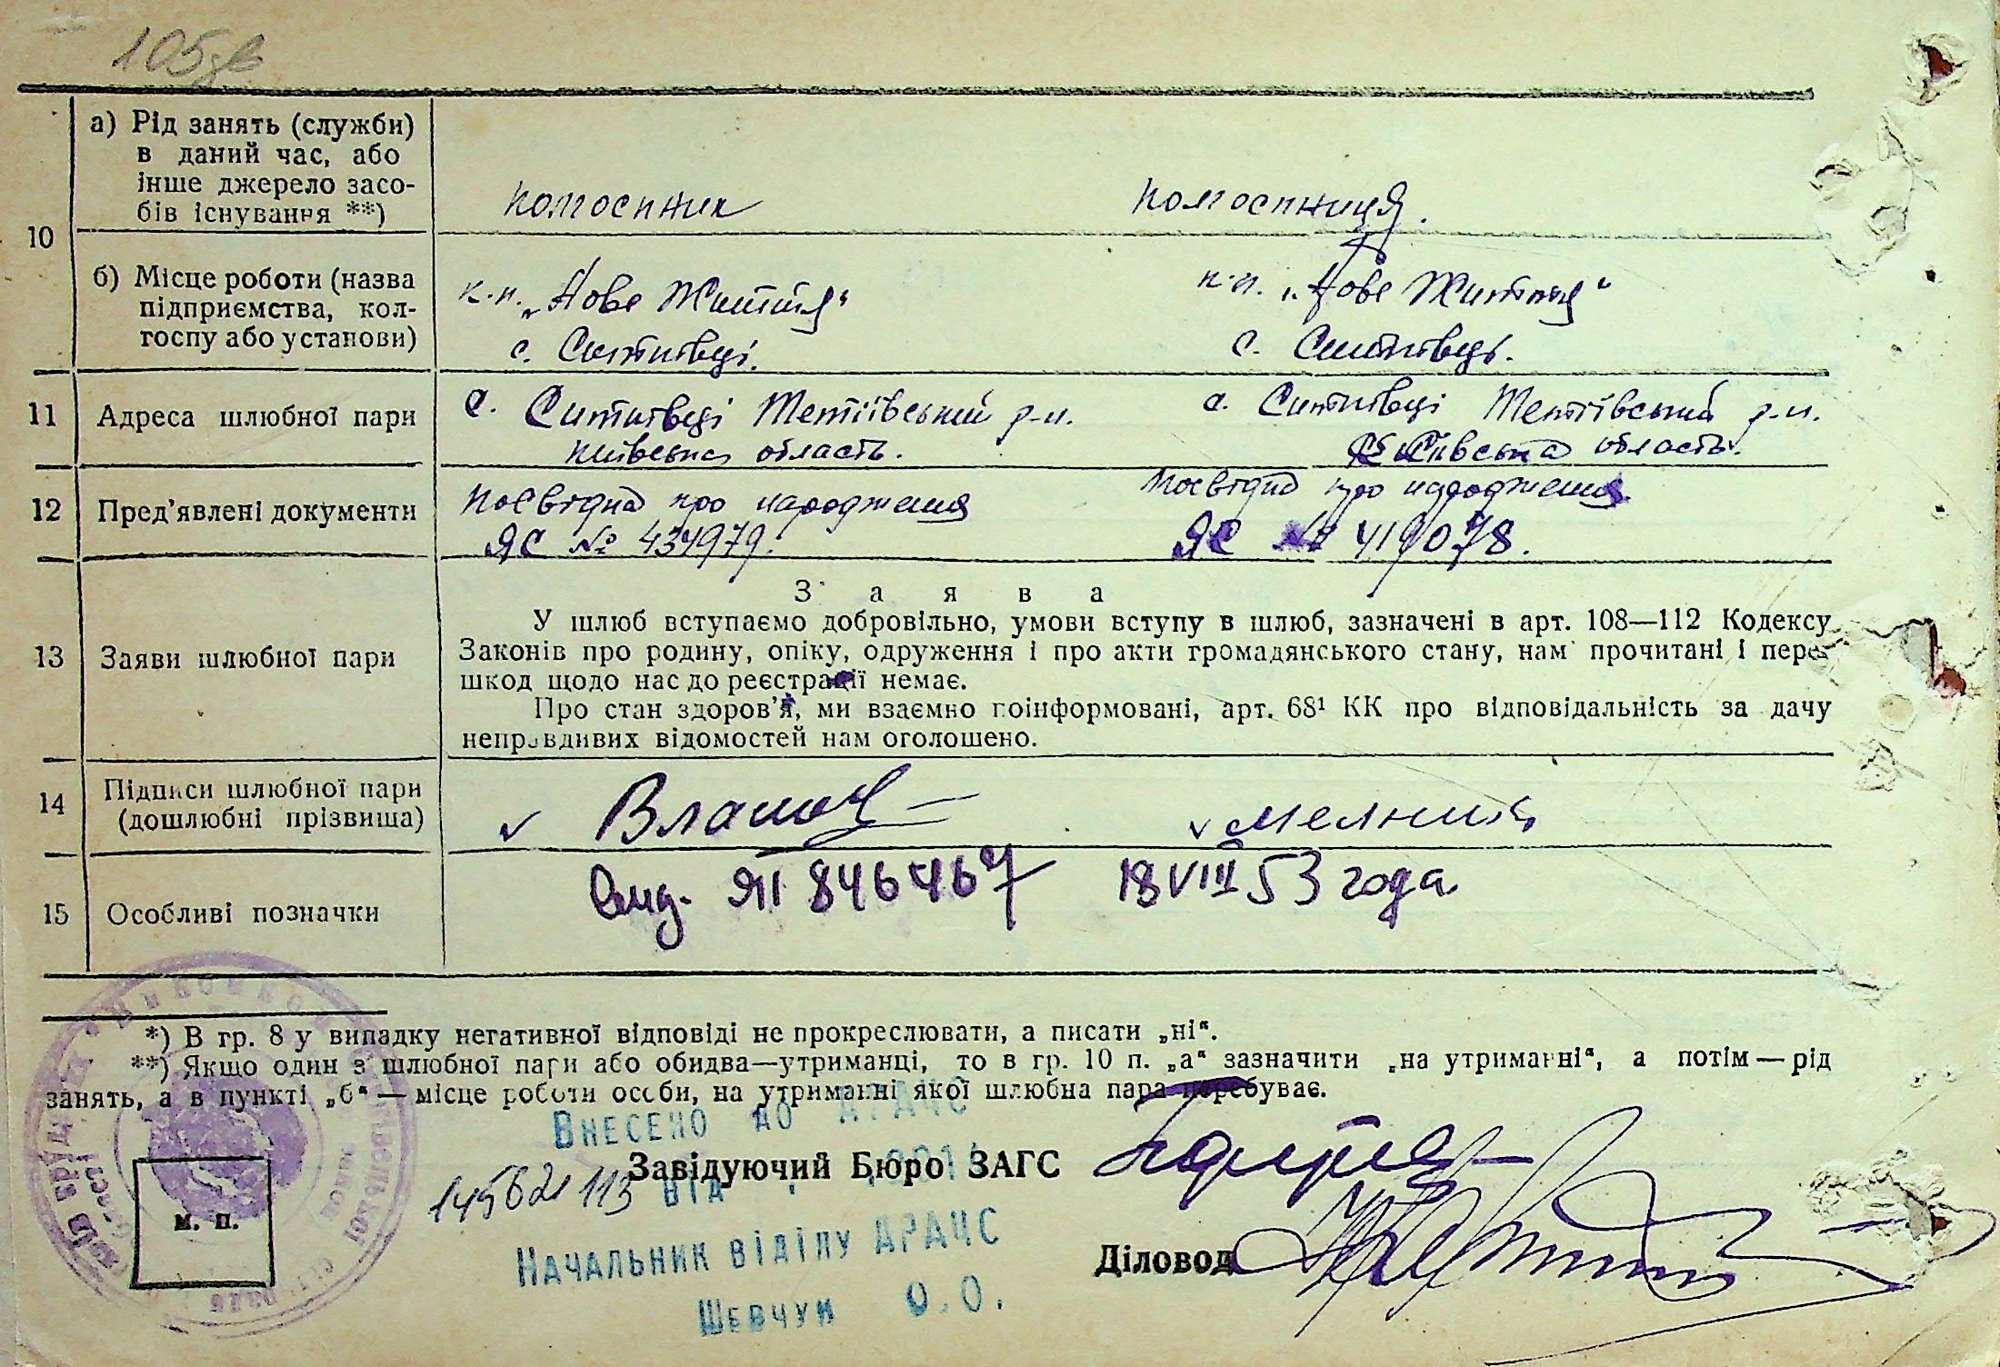 105зв
10
а) Рід занять (служби)
в даний час, або
інше джерело засо-
бів існування **)
колгоспник колгоспниця.
б) Місце роботи (назва
підприємства, кол-
госпу або установи)
к-п. „Нове Життя“ к-п. „Нове Життя“
с. Ситківці. с. Ситківці.
11 Адреса шлюбної пари
с. Ситківці Тетіївський р-н. с. Ситківці Тетіївський р-н.
Київська область. Київська область.
12 Пред'явлені документи
Посвідка про народження Посвідка про народження
ЯС № 434979. ЯС № 419078.
13 Заяви шлюбної пари
Заява
У шлюб вступаємо добровільно, умови вступу в шлюб, зазначені в арт. 108—112 Кодексу
Законів про родину, опіку, одруження і про акти громадянського стану, нам прочитані і пере-
шкод щодо нас до реєстрації немає.
Про стан здоров'я, ми взаємно поінформовані, арт. 68¹ КК про відповідальність за дачу
неправдивих відомостей нам оголошено.
14 Підписи шлюбної пари
(дошлюбні прізвища)
v v Мелник
15 Особливі позначки
ЯП 846467 18 VIII 53 года
*) В гр. 8 у випадку негативної відповіді не прокреслювати, а писати „ні“.
**) Якщо один з шлюбної пари або обидва—утриманці, то в гр. 10 п. „а“ зазначити „на утриманні“, а потім — рід
занять, а в пункті „б“ — місце роботи особи, на утриманні якої шлюбна пара перебуває.
Внесено до ДРАЦС
Завідуючий Бюро ЗАГС
від
м. п.
Начальник відділу ДРАЦС
Діловод
Шевчук О.О.